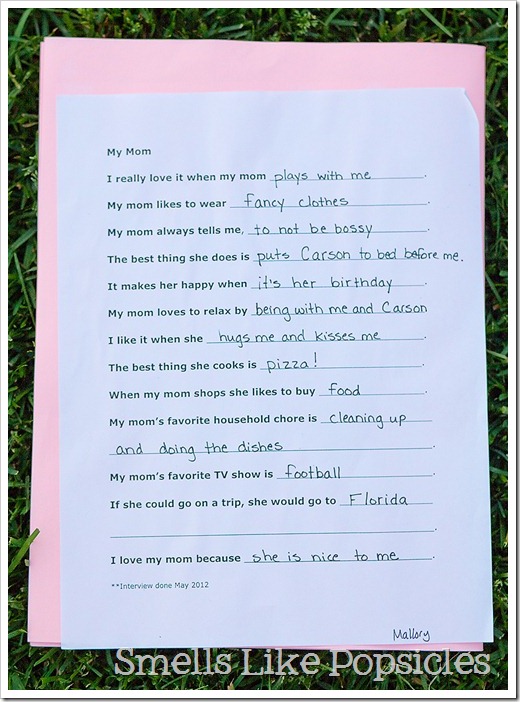 My Mom
I really love it when my mom plays with me.
My mom likes to wear fancy clothes.
My mom always tells me, to not be bossy.
The best thing she does is puts Carson to bed before me.
It makes her happy when it's her birthday.
My mom loves to relax by being with me and Carson
I like it when she hugs me and kisses me.
The best thing she cooks is pizza!.
When my mom shops she likes to buy food.
My mom's favorite household chore is cleaning up
and doing the dishes.
My mom's favorite TV show is football.
If she could go on a trip, she would go to Florida
.
I love my mom because she is nice to me.
**Interview done May 2012
Mallory
Smells Like Popsicles